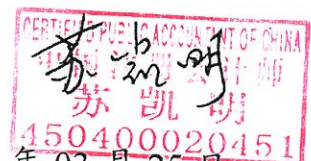 CERTIFIED PUBLIC ACCOUNTANT OF CHINA
苏凯明
苏凯明
450400020451
年 03 月 25 日